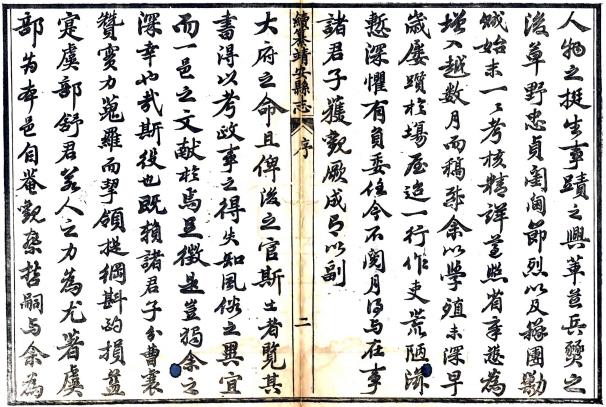 人物之挺生事蹟之興革並兵燹之
後草野忠貞閨閫節烈以及緣團勦
賊始末一一考核精詳並照省章遞為
增入越數月而稿成余以學殖未深早
歲屢躓於場屋迨一行作吏荒陋滋
慙深懼有負委任今不閱月得與在事
諸君子獲觀厥成可以副
續纂靖安縣志 序 二
大府之命且俾後之官斯土者覽其
書得以考政事之得失知風俗之異宜
而一邑之文献於焉足徵是豈獨余之
深幸也哉斯役也既賴諸君子分曹襄
贊實力蒐羅而挈領提綱斟酌損益
寔虞部舒君若人之力為尤著虞
部為本邑自菴觀察哲嗣与余為